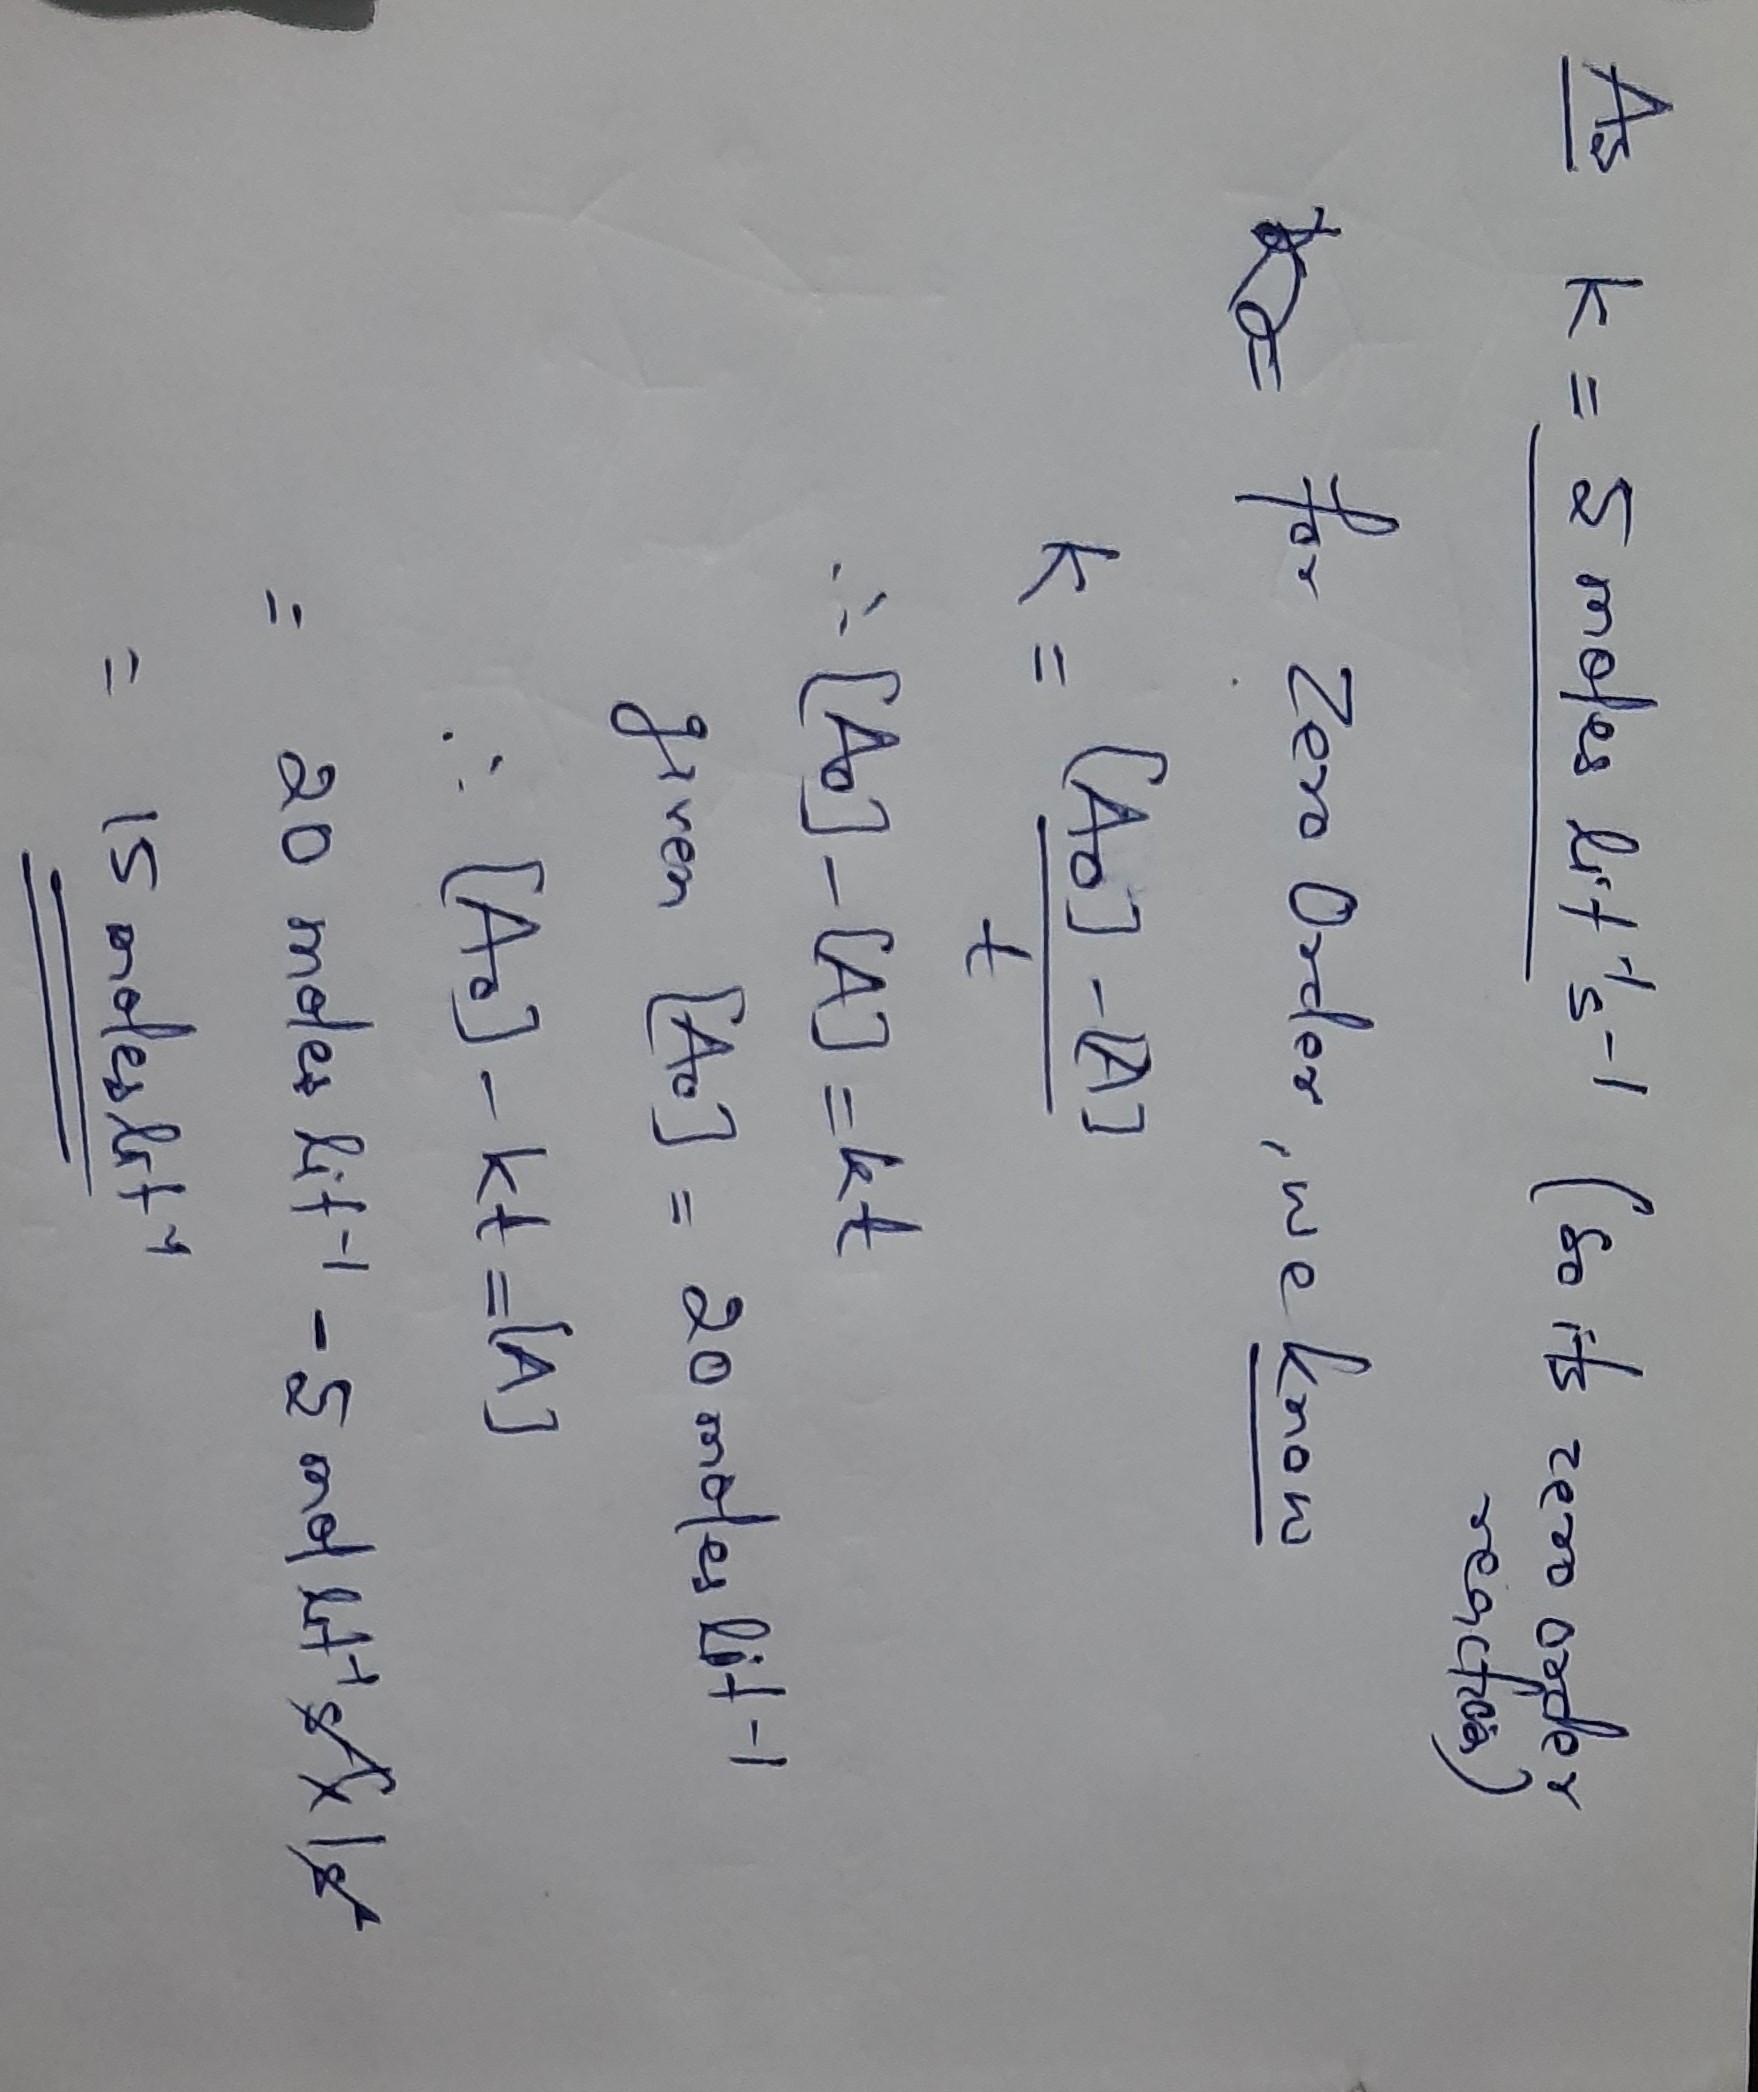 As k = 5 moles lit⁻¹s⁻¹ (so its zero order
reaction)
for Zero Order, we know
k = [A₀] - [A]
t
∴ [A₀] - [A] = kt
given [A₀] = 20 moles lit⁻¹
∴ [A₀] - kt = [A]
= 20 moles lit⁻¹ - 5 mol lit⁻¹ s⁻¹ x 1s
= 15 moles lit⁻¹